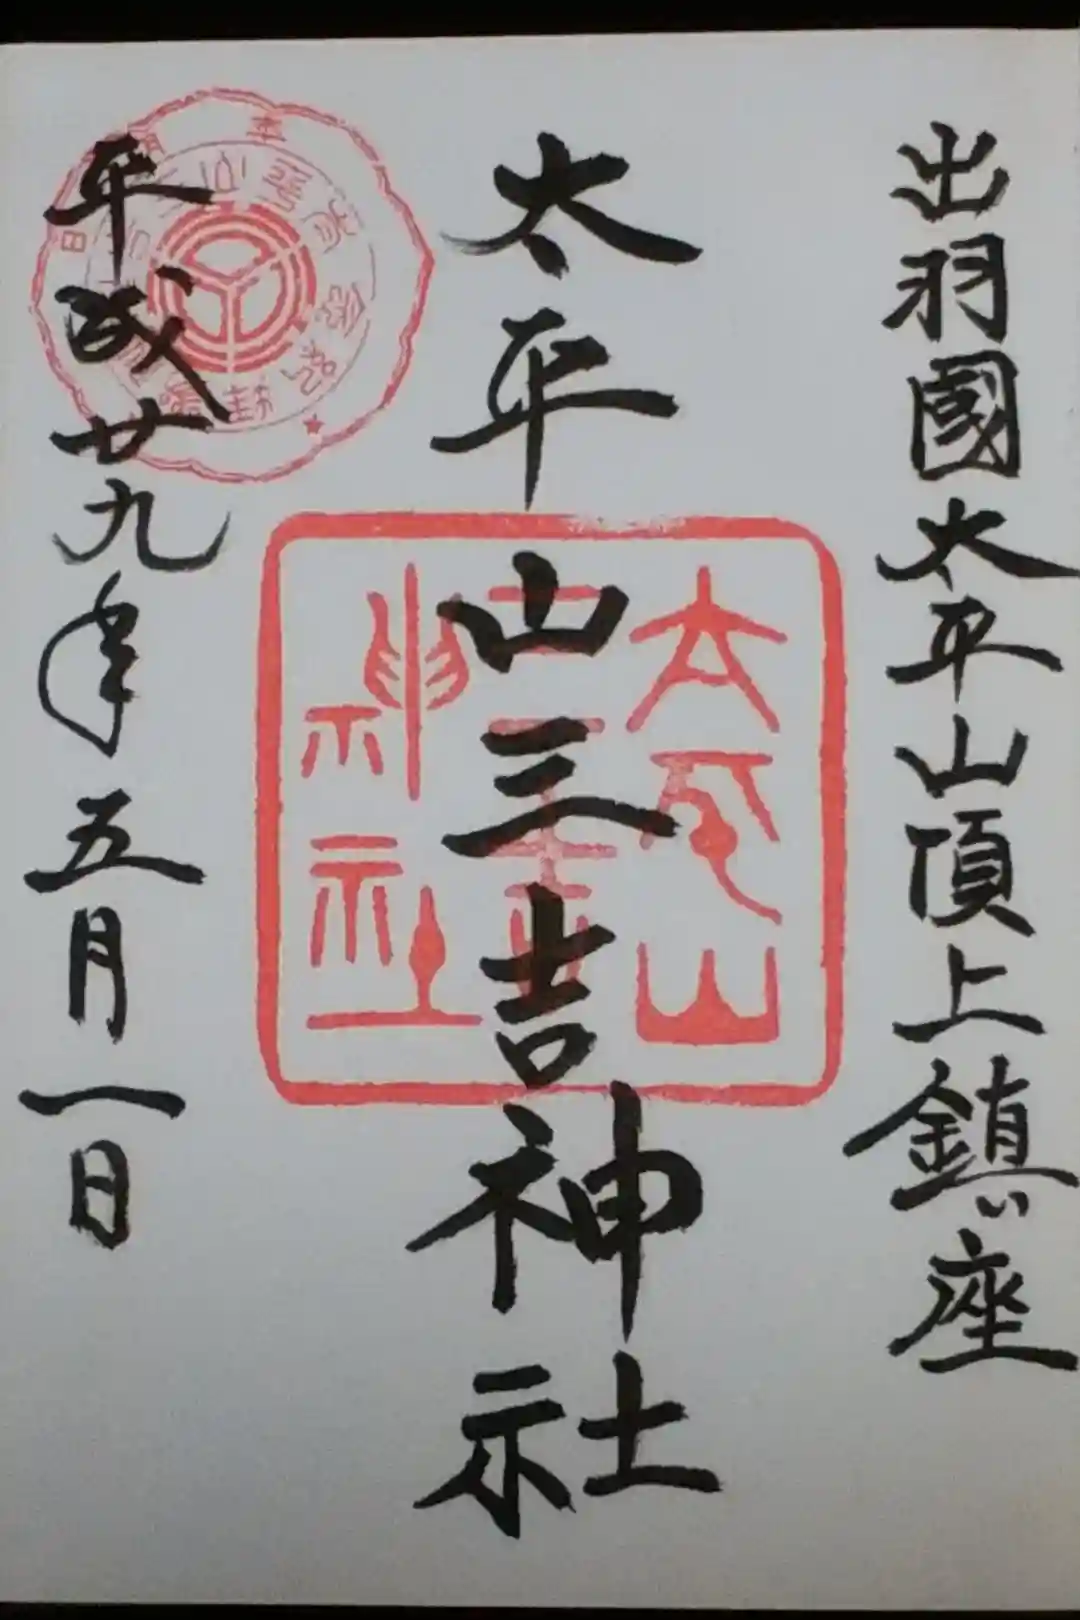 出羽國太平山頂上鎮座
太平山三吉神社
太平山
三吉
神社
平成廿九年五月一日